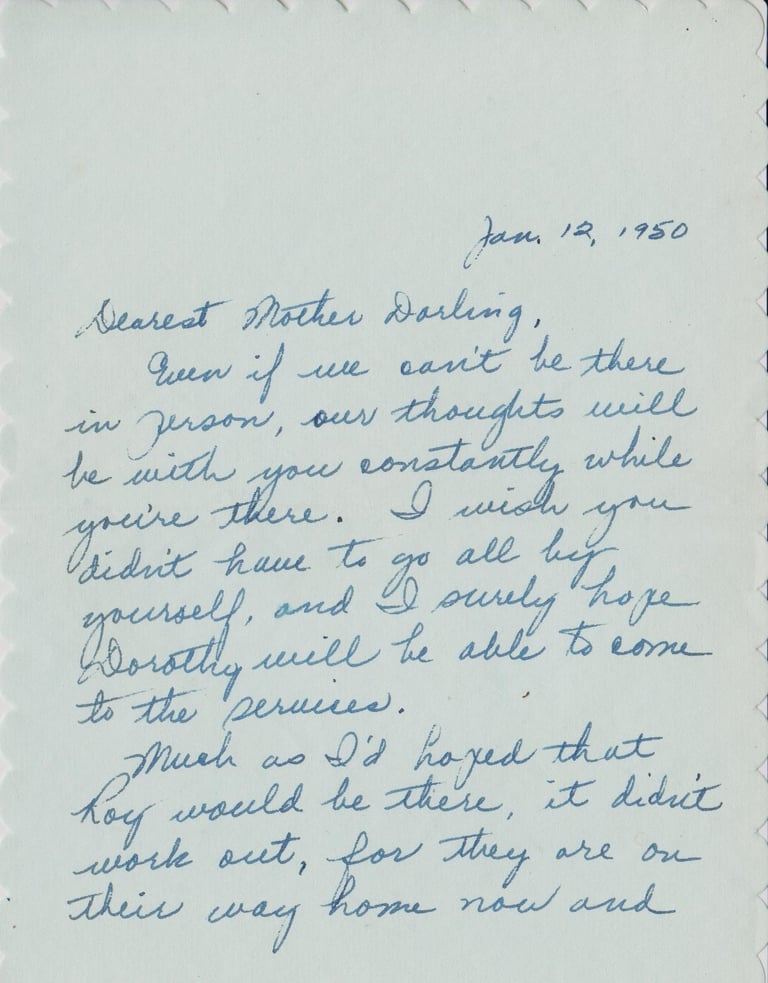 Jan. 12, 1950
Dearest Mother Darling,
Even if we can't be there
in person, our thoughts will
be with you constantly while
you're there. I wish you
didn't have to go all by
yourself, and I surely hope
Dorothy will be able to come
to the services.
Much as I'd hoped that
Roy would be there, it didn't
work out, for they are on
their way home now and